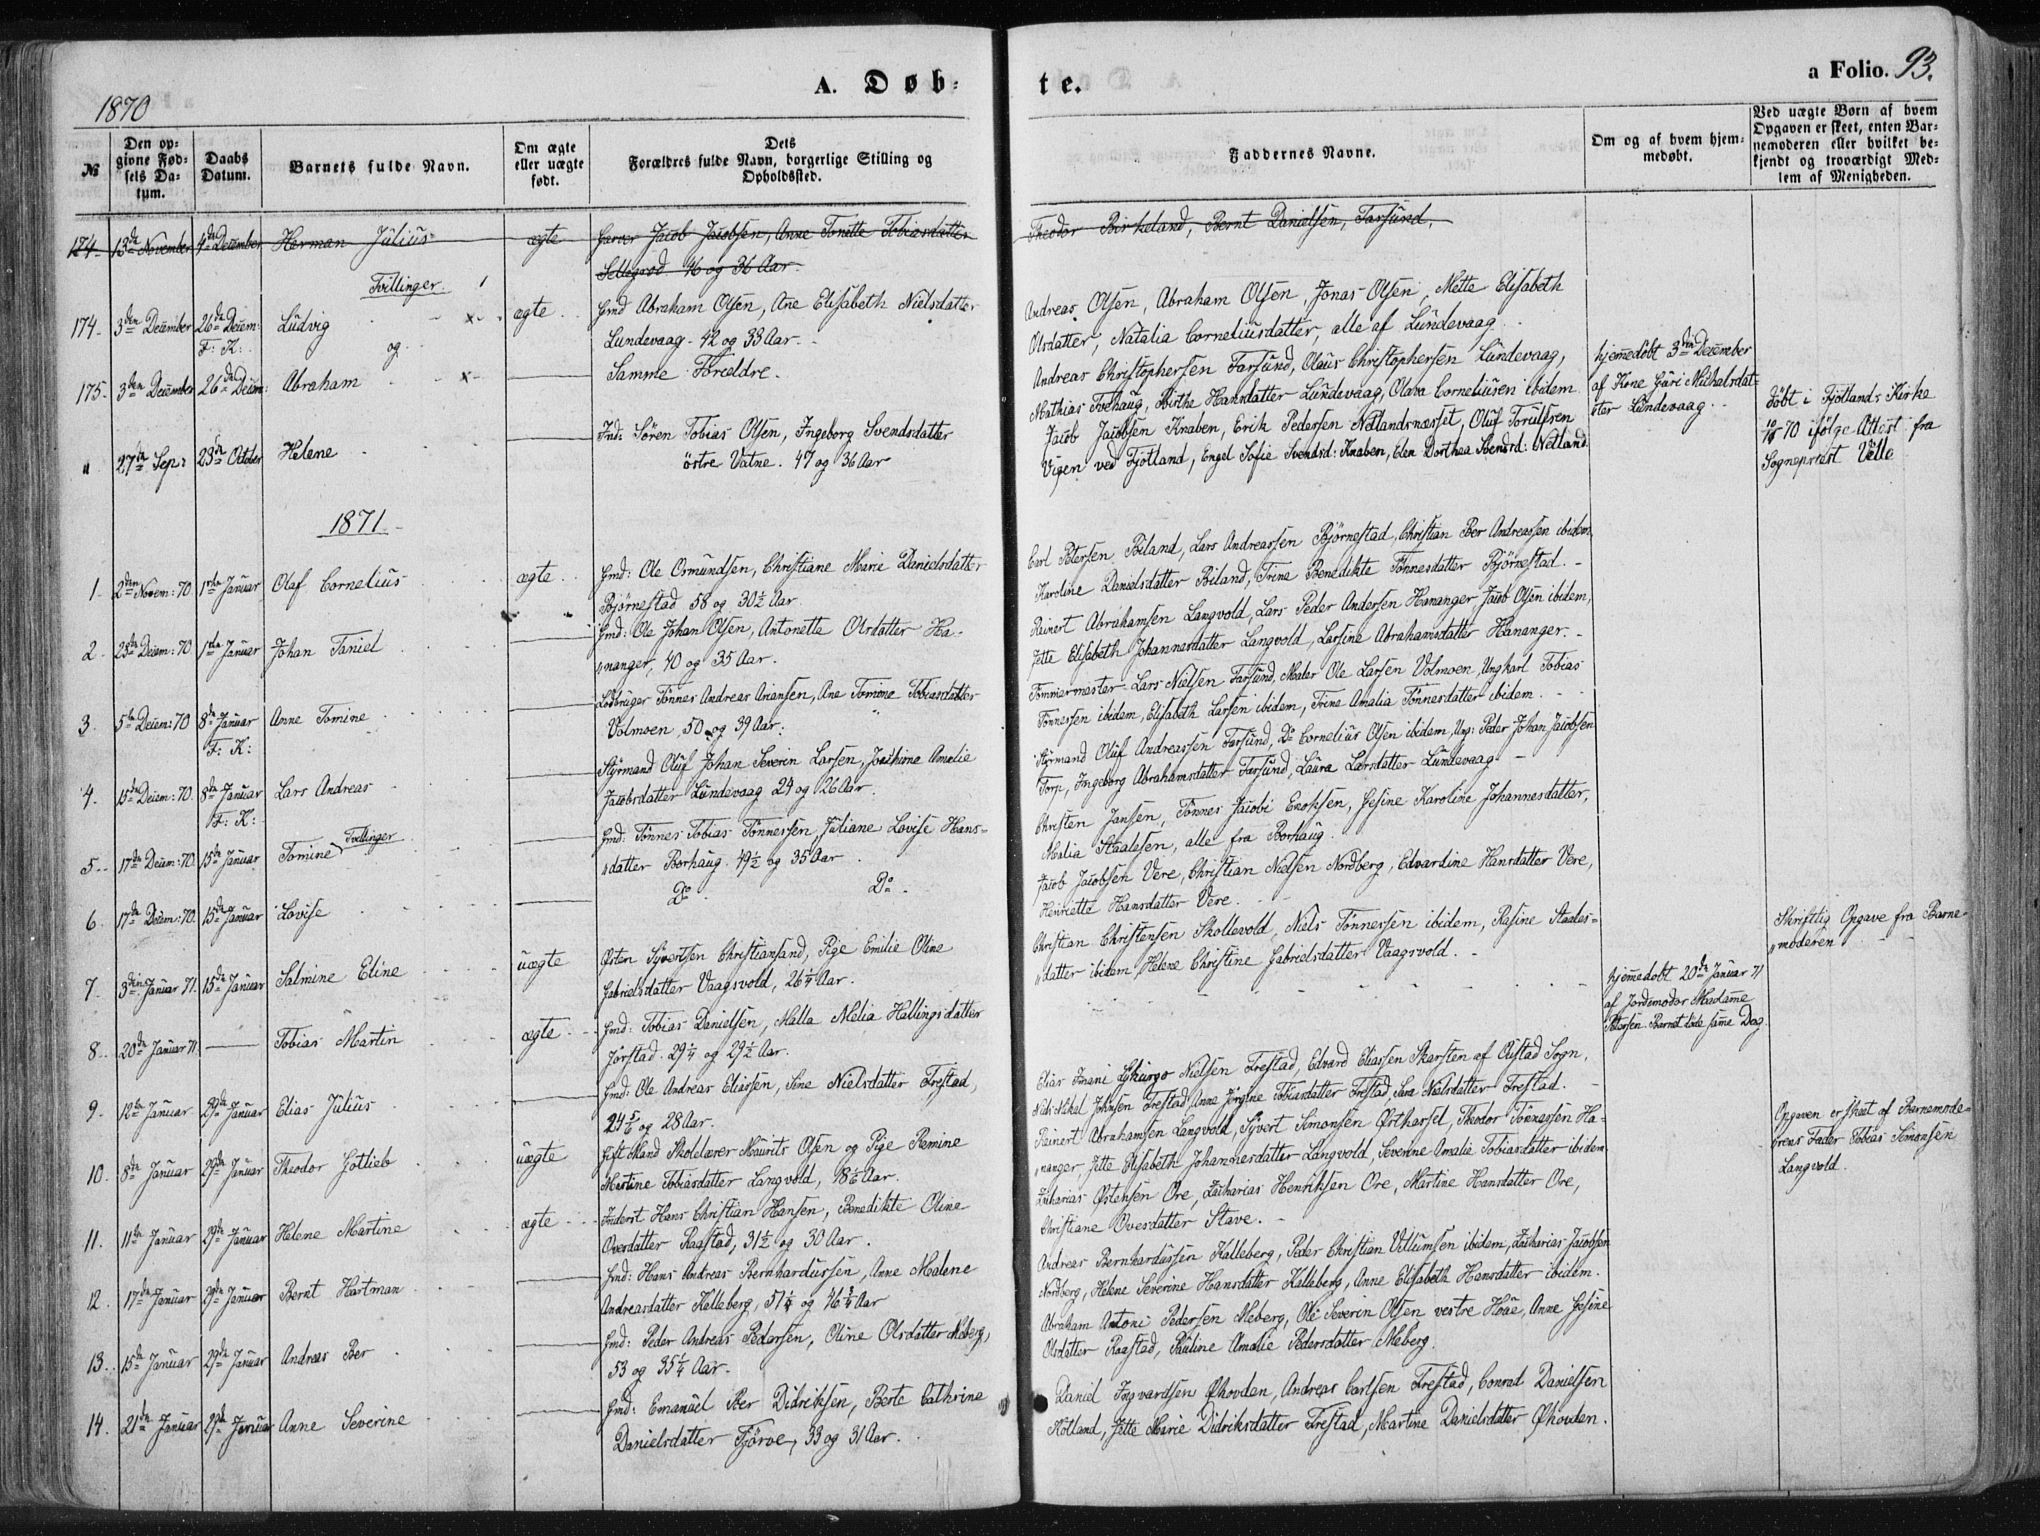 A. Døb-
te.
a Folio. 93.
1870
№
Den op-
givne Fød-
sels Da-
tum.
Daabs
Datum.
Barnets fulde Navn.
Om ægte
eller uægte
født.
Dets
Forældres fulde Navn, borgerlige Stilling og
Opholdssted.
Faddernes Navne.
Om og af hvem hjem-
medøbt.
Ved uægte Børn af hvem
Opgaven er skeet, enten Bar-
nemoderen eller hvilket be-
kjendt og troværdigt Med-
lem af Menigheden.
174. 13de November 4de December Herman Julius ægte Garver Jacob Jacobsen, Anne Tonette Tobiasdatter
Sellegrod 46 og 36 Aar.
Theodor Birkeland, Bernt Danielsen, Farsund.
Tvillinger
174. 3den December 26de Decem: Ludvig ægte Gmd Abraham Olsen, Ane Elisabeth Nielsdatter
F: K: og Lundevaag. 42 og 33 Aar.
Andreas Olsen, Abraham Olsen, Jonas Olsen, Mette Elisabeth
Olsdatter, Natalia Corneliusdatter, alle af Lundevaag.
175. 3den December 26de Decem: Abraham Samme Forældre.
Andreas Christophersen Farsund, Olaus Christophersen Lundevaag,
Mathias Tvehaug, Birthe Hansdatter Lundevaag, Olava Corneliusen ibidem
hjemmedøbt 3den December
af Kone Guri Michalsdat-
ter Lundevaag.
" 27de Sep: 23de October Helene Ind: Søren Tobias Olsen, Ingeborg Svendsdatter
østre Vatne. 47 og 36 Aar
Jacob Jacobsen Knaben, Erik Pedersen Netlandsnæsset, Oluf Torulfsen
Vigen ved Fjotland, Engel Sofie Svendsd: Knaben, Elen Dorthea Svendsd: Netland
døbt i Fjotlands Kirke
70 ifølge Attest fra
Sogneprest Velle
1871
1. 2den Novem: 70 1ste Januar Olaf Cornelius ægte Gmd: Ole Osmundsen, Christiane Marie Danielsdatter
Bjørnestad 58 og 30½ Aar
Carl Petersen Biland, Lars Andreassen Bjørnestad, Christian Ber Andreassen ibidem,
Karoline Danielsdatter Biland, Trine Benedikte Tønnesdatter Bjørnestad.
2. 23de Decem: 70 1ste Januar Johan Taniel Gmd: Ole Johan Olsen, Antonette Olsdatter Ha-
nanger, 40 og 35 Aar.
Reinert Abrahamsen Langvold, Lars Peder Andersen Hananger Jacob Olsen ibidem,
Jette Elisabeth Johannesdatter Langvold, Larsine Abrahamsdatter Hananger.
3. 5te Decem: 70 8de Januar Anne Tomine Lodbruger Tønnes Andreas Ariansen, Ane Tomine Tobiasdatter
F: K: Volmoen, 50 og 39 Aar:
Tømmermester Lars Nielsen Farsund, Maler Ole Larsen Volmoen, Ungkarl Tobias
Tønnessen ibidem, Elisabeth Larsen ibidem, Trine Amalia Tønnesdatter ibidem.
4. 15de Decem: 70. 8de Januar Lars Andreas Styrmand Oluf Johan Severin Larsen, Jochime Amelie
F: K: Jacobsdatter Lundevaag 24 og 26 Aar.
Styrmand Oluf Andreassen Farsund, Do Cornelius Olsen ibidem, Ung: Peder Johan Jacobsen
Torp, Ingeborg Abrahamsdatter Farsund, Laura Larsdatter Lundevaag
Tvillinger
5. 17de Decem: 70. 15de Januar Tomine Gmd: Tønnes Tobias Tønnessen, Juliane Lovise Hans-
datter Borhaug. 49½ og 35 Aar
Christen Jansen, Tønnes Jacobi Enoksen, Gesine Karoline Johannesdatter,
Malia Staalesen, alle fra Borhaug.
6. 17de Decem: 70. 15de Januar Lovise Do. Do.
Jacob Jacobsen Vere, Christian Nielsen Nordberg, Edvardine Hansdatter Vere,
Henriette Hansdatter Vere.
7. 3die Januar 71. 15de Januar Salmine Eline uægte Østen Syvertsen Christiansand, Pige Emilie Oline
Gabrielsdatter Vaagsvold, 26¼ Aar.
Christian Christensen Skollevold, Niels Tønnessen ibidem, Rasine Staales-
datter ibidem, Helene Christine Gabrielsdatter Vaagsvold.
Skriftlig Opgave fra Barne-
moderen
8. 20de Januar 71 Tobias Martin ægte Gmd: Tobias Danielsen, Malla Melia Hallingsdatter
Jørstad. 29¼ og 29½ Aar.
hjemmedøbt 20de Januar 71
af Jordemoder Madame
Petersen Barnet døde samme Dag.
9. 12te Januar 29de Januar Elias Julius Gmd: Ole Andreas Eliassen, Sine Nielsdatter Frestad,
24 5/6 og 28 Aar.
Elias Imani Lykurgo Nielsen Frestad, Edvard Eliassen Skarsten af Oystad Sogn,
Niels Mikel Johnsen Frestad, Anna Jørgine Tobiasdatter Frestad, Sara Nielsdatter Frestad.
10. 8de Januar 29de Januar Theodor Gotlieb uægte Gift Mand Skolelærer Maurits Olsen og Pige Bemine
Martine Tobiasdatter Langvold, 18 1/6 Aar.
Reinert Abrahamsen Langvold, Syvert Simonsen Østhassel, Theodor Tønnessen Ha-
nanger Jette Elisabeth Johannesdatter Langvold, Severine Amalia Tobiasdatter ibidem.
Opgaven er skeet af Barnemode-
rens Fader Tobias Simonsen
Langvold.
11. 11te Januar 29de Januar Helene Martine ægte Inderst Hans Christian Hansen, Benedikte Oline
Ovesdatter Raastad, 31½ og 30 Aar.
Zacharias Østensen Ore, Zacharias Henriksen Ore, Martine Hansdatter Ore,
Christiane Ovesdatter Stave.
12. 17de Januar 29de Januar Bernt Hartman Gmd: Hans Andreas Bernhardussen, Anne Malene
Andreasdatter Kalleberg, 51¼ og 46¾ Aar
Andreas Bernhardussen Kalleberg, Peder Christian Villumsen ibidem, Zacharias Jacobsen
Nordberg, Helene Severine Hansdatter Kalleberg, Anne Elisabeth Hansdatter ibidem.
13. 15de Januar 29de Januar Andreas Ber Gmd: Peder Andreas Pedersen, Oline Olsdatter Meberg,
53 og 35¼ Aar.
Abraham Antoni Pedersen Meberg, Ole Severin Olsen vestre Haue, Anne Gesine
Olsdatter Raastad, Pauline Amalie Pedersdatter Meberg.
14. 21de Januar 29de Januar Anne Severine Gmd: Emanuel Ber Didriksen, Berte Cathrine
Danielsdatter Tjørve, 33 og 31 Aar.
Daniel Ingvardsen Ohovden, Andreas Carlsen Frestad, Conrad Danielsen
Kotland, Jette Marie Didriksdatter Frestad, Martine Danielsdatter Ohovden.